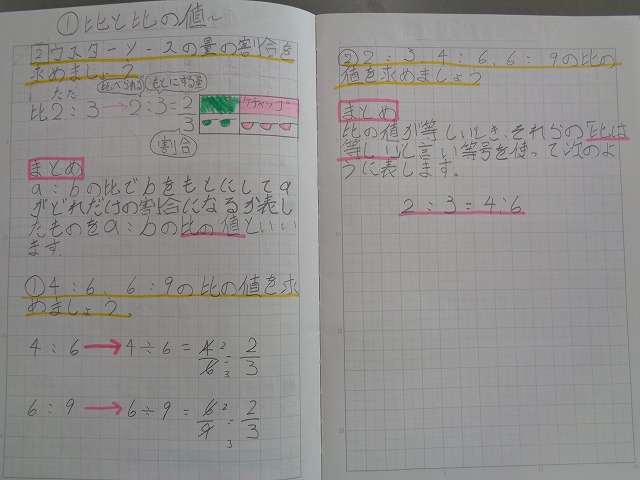 ①比と比の値〜
②ウスターソースの量の割合を
求めましょう。
比べられる もとにする量
比2:3→2:3=2/3
ケチャップ
割合
まとめ
a:bの比でbをもとにしてa
がどれだけの割合になるか表し
たものをa:bの比の値といい
ます。
①4:6、6:9の比の値を求
めましょう。
4:6→4÷6=4/6=2/3
6:9→6÷9=6/9=2/3
②2:3、4:6、6:9の比の
値を求めましょう
まとめ
比の値が等しいとき、それらの「比は
等しい」と言い等号を使って次のよ
うに表します。
2:3=4:6